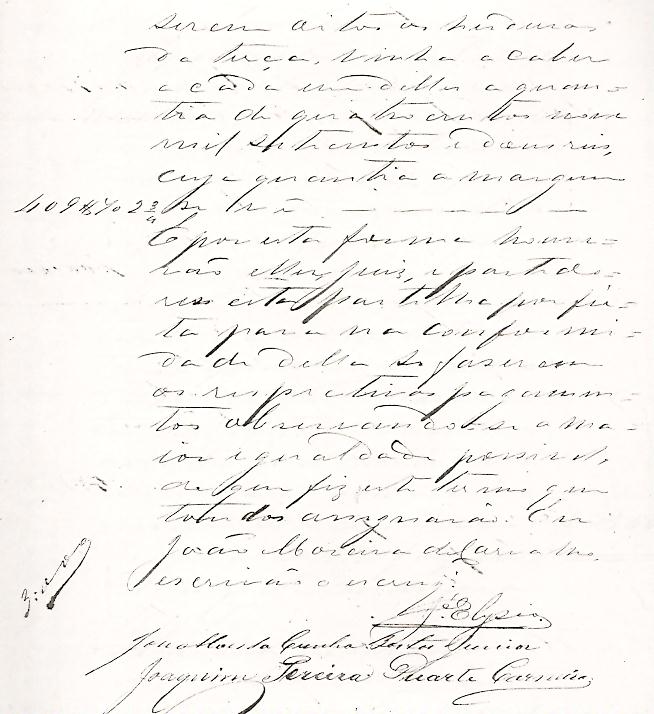 serem oitos os herdeiros
da terça, vinha a caber
a cada um delles a quan-
tia de quatro centos nove
mil setecentos e dous reis,
cuja quantia a margem
409$702 se vê
E por esta forma houve-
rão elles Juiz, e partido-
res esta partilha por fei-
ta para na conformi-
dade della se faserem
os respectivos pagamen-
tos observando-se a ma-
ior igualdade possivel,
de que fiz este termo que
todos assignarão. Eu
João Moreira de Carvalho,
escrivão o escrevi.
Elysio
da Cunha Junior
Joaquim Pereira Duarte